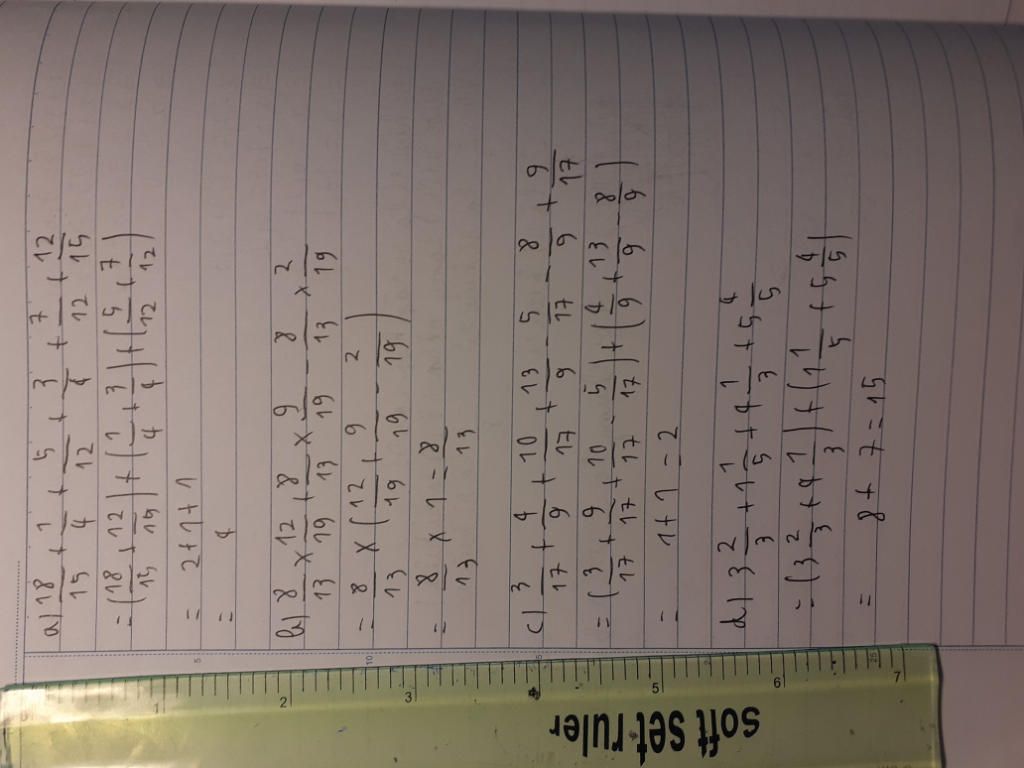 a) 18/15 + 1/4 + 5/12 + 3/4 + 7/12 + 12/15
= (18/15 + 12/15) + (1/4 + 3/4) + (5/12 + 7/12)
= 2+1+1
= 4
b) 8/13 x 12/19 + 8/13 x 9/19 - 8/13 x 2/19
= 8/13 x (12/19 + 9/19 - 2/19)
= 8/13 x 1 = 8/13
c) 3/17 + 4/9 + 10/17 + 13/9 - 5/17 - 8/9 + 9/17
= (3/17 + 9/17 + 10/17 - 5/17) + (4/9 + 13/9 - 8/9)
= 1+1 = 2
d) 3 2/3 + 1 1/5 + 4 1/3 + 5 4/5
= (3 2/3 + 4 1/3) + (1 1/5 + 5 4/5)
= 8+7=15
1 2 3 4 5 6 7
soft set ruler